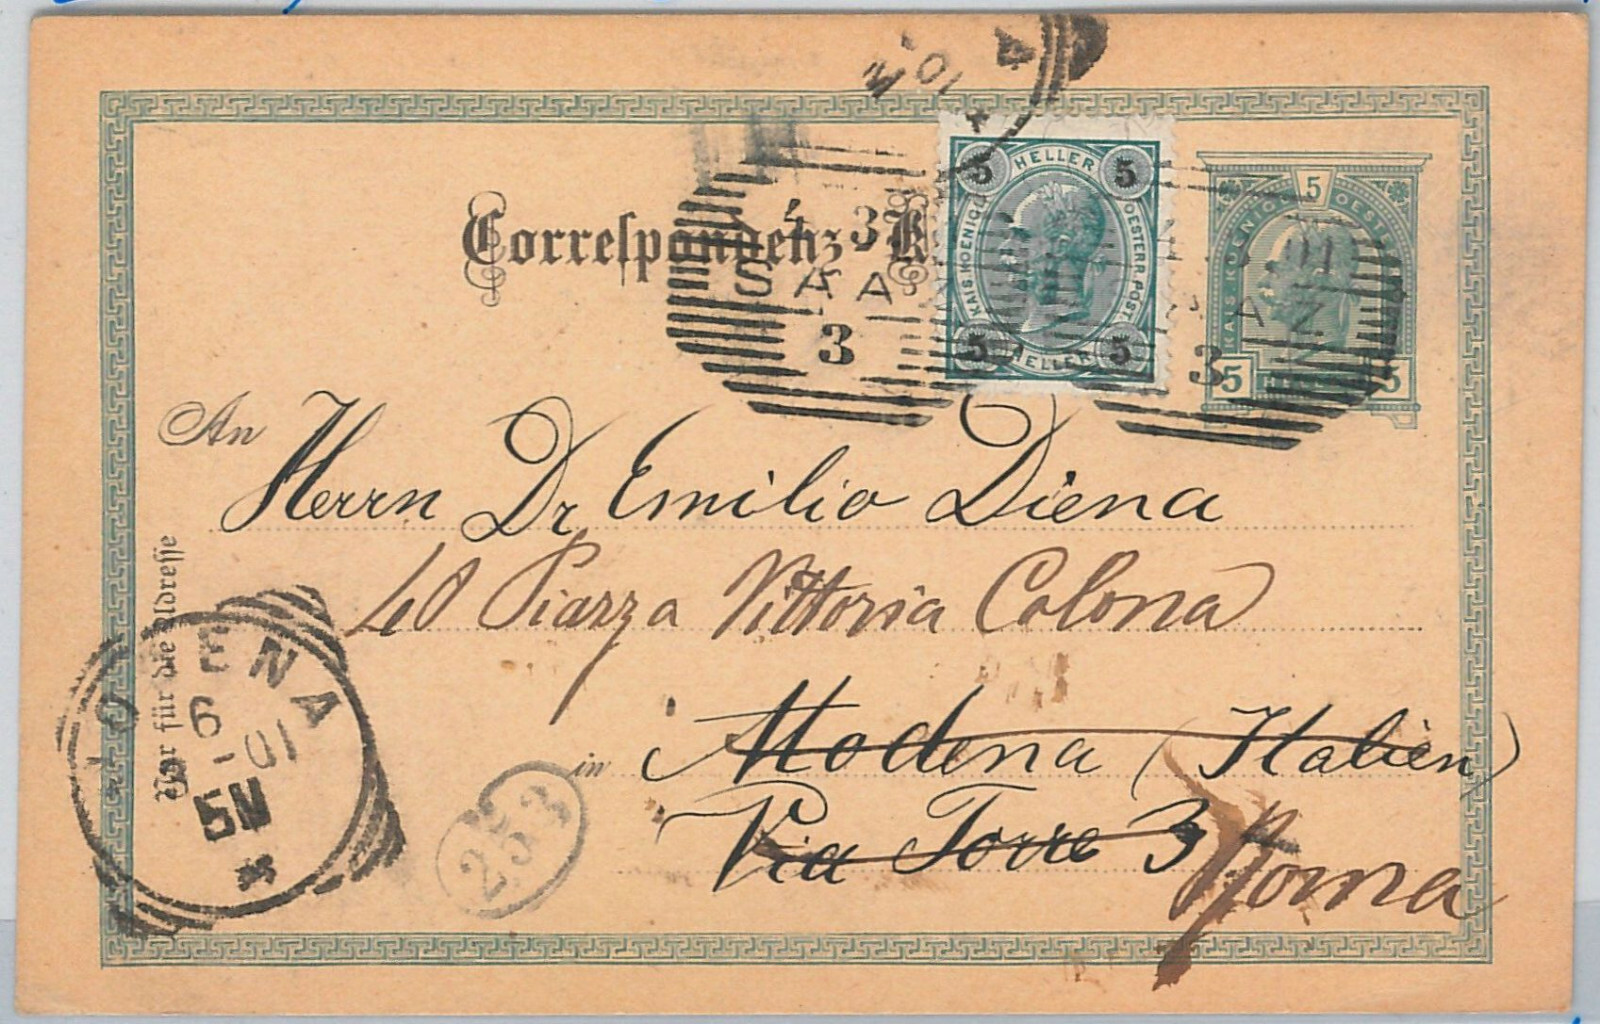 Correspondenz-K
5 HELLER 5
KAIS. KOENIGL. OESTERR. POST
5 HELLER 5
5
KAIS. KOENIGL. OESTERR.
5 5
4 3
SAAZ
3
4 3.01
SAAZ
3
An
Herrn Dr Emilio Diena
40 Piazza Vittoria Colona
in Modena (Italien)
Via Torre 3
Roma
Nur für die Adresse
MODENA
6
-01
5N
253